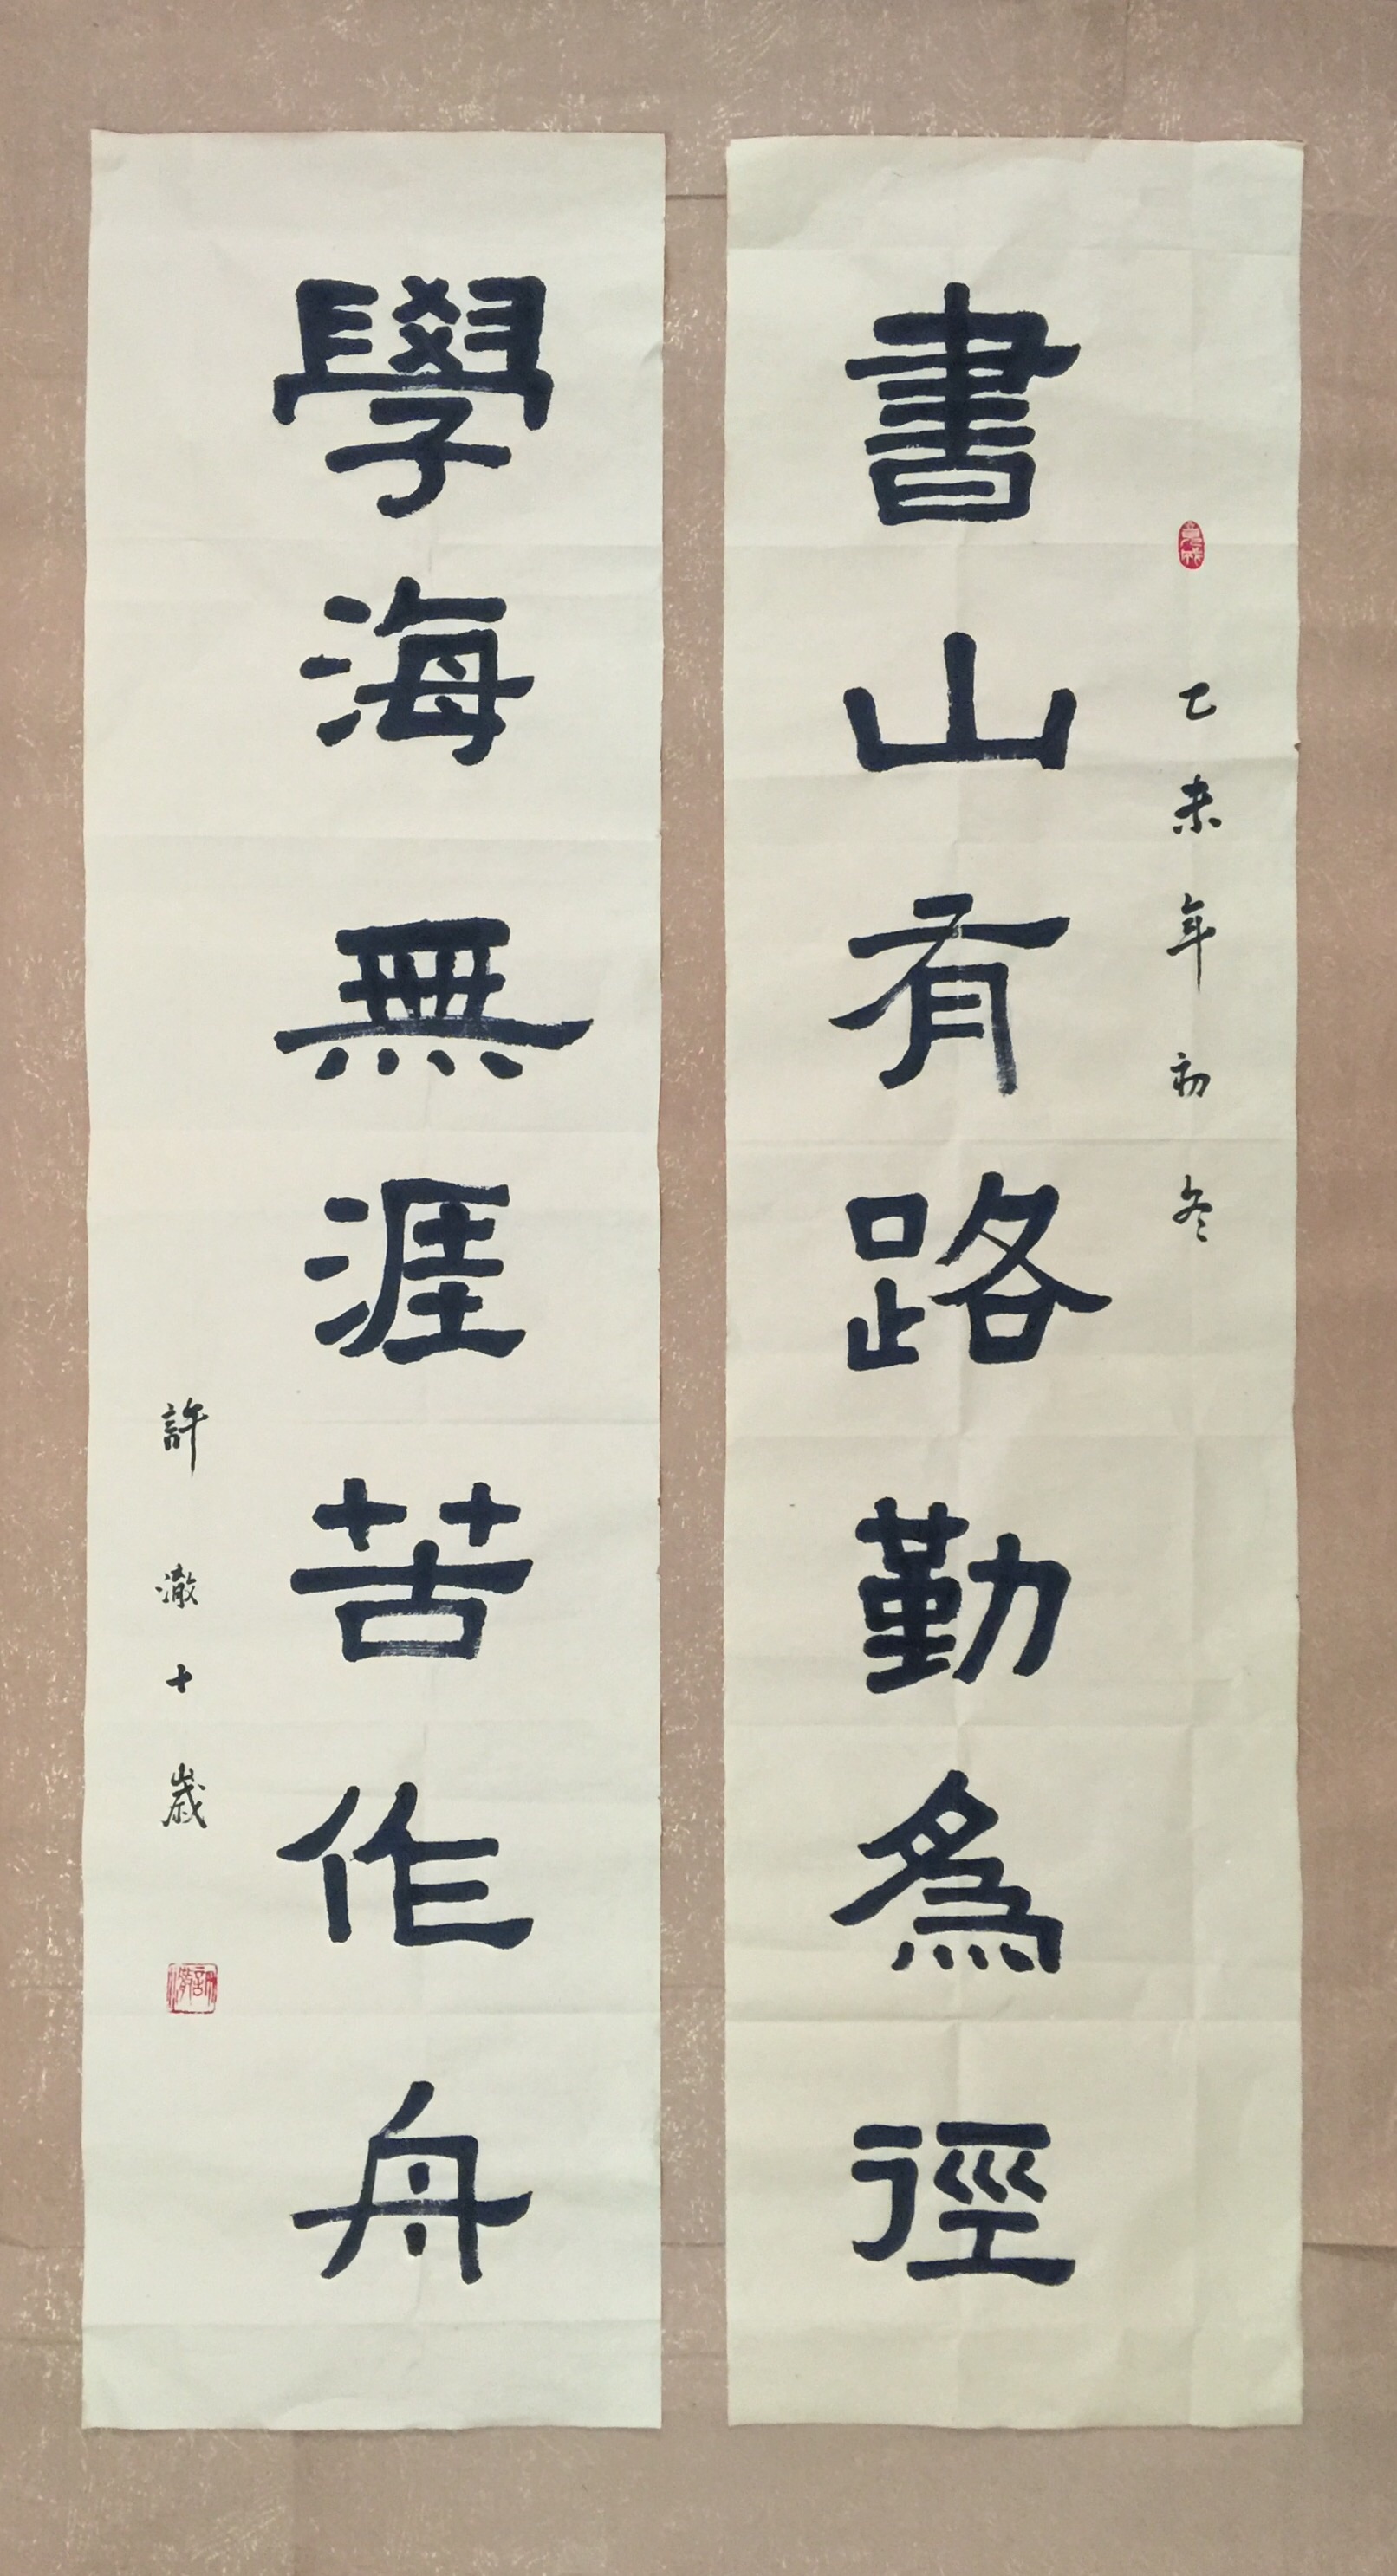 乙未年初冬
書山有路勤為徑
學海無涯苦作舟
許澈十歲